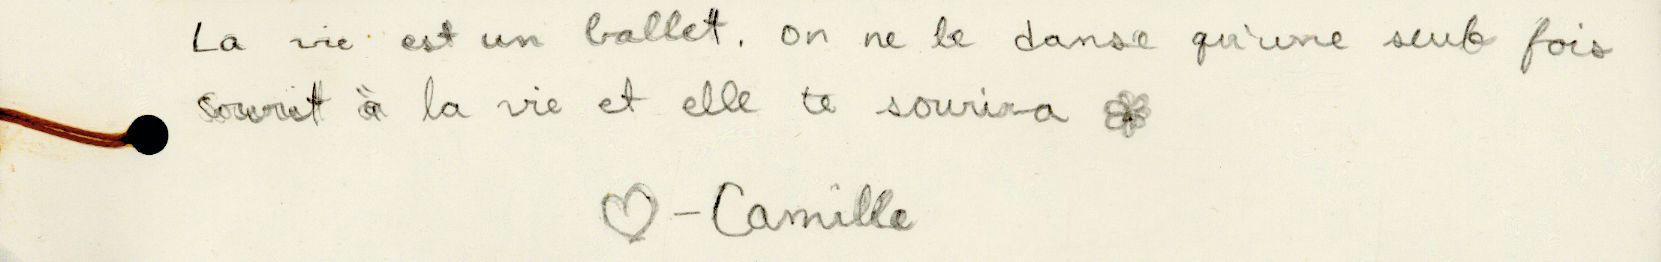 La vie est un ballet, on ne le danse qu'une seule fois
Sourit à la vie et elle te sourira
♡ - Camille